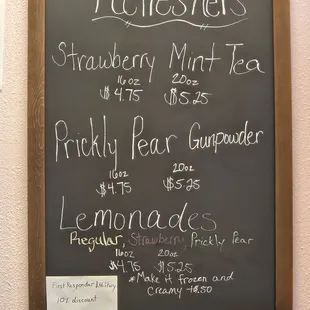 Refreshers
Strawberry Mint Tea
16oz 20oz
$4.75 $5.25
Prickly Pear Gunpowder
16oz 20oz
$4.75 $5.25
Lemonades
Regular, Strawberry, Prickly Pear
16oz 20oz
$4.75 $5.25
*Make it frozen and
creamy +$.50
First Responder &
10% discount